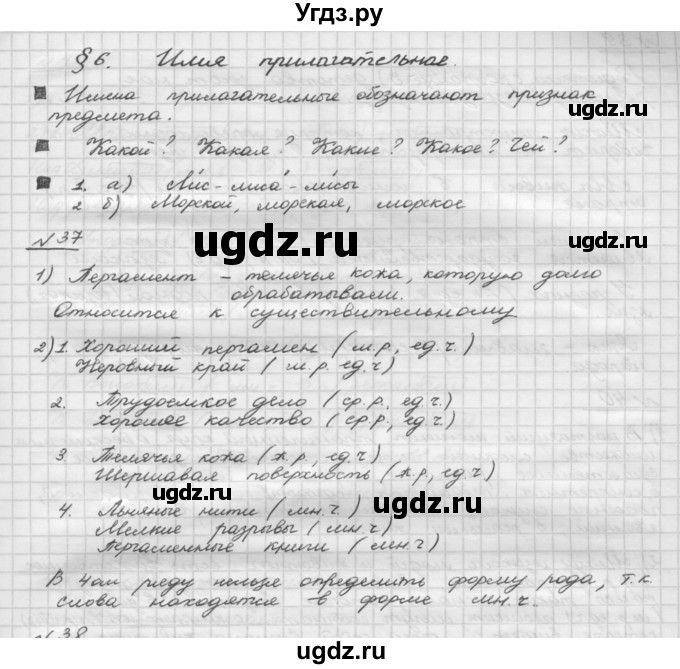 Угдз.ру
§ 6. Имя прилагательное.
Имена прилагательные обозначают признак
ugdz.ru
предмета.
ugdz.ru
Какой? Какая? Какие? Какое? Чей?
1. а) Лис - лиса - лисы
2 б) Морской, морская, морское
ugdz.ru
№ 37
ugdz.ru
1) Пергамент – телячья кожа, которую долго
обрабатываем.
Относится к существительному
2) 1. Хороший пергамен (м.р., ед.ч.)
Неровный край (м.р. ед.ч.)
ugdz.ru
2. Трудоёмкое дело (ср.р. ед.ч.)
хорошее качество (ср.р, ед.ч.)
3. Телячья кожа (ж.р., ед.ч)
Шершавая поверхность (ж.р, ед.ч)
ugdz.ru
ugdz.ru
4. Льняные нити (мн.ч.)
Мелкие разрывы (мн.ч)
Пергаменные книги (мн.ч)
В 4ом ряду нельзя определить форму рода, т.к.
слова находятся в форме мн.ч.
№ 38
ugdz.ru